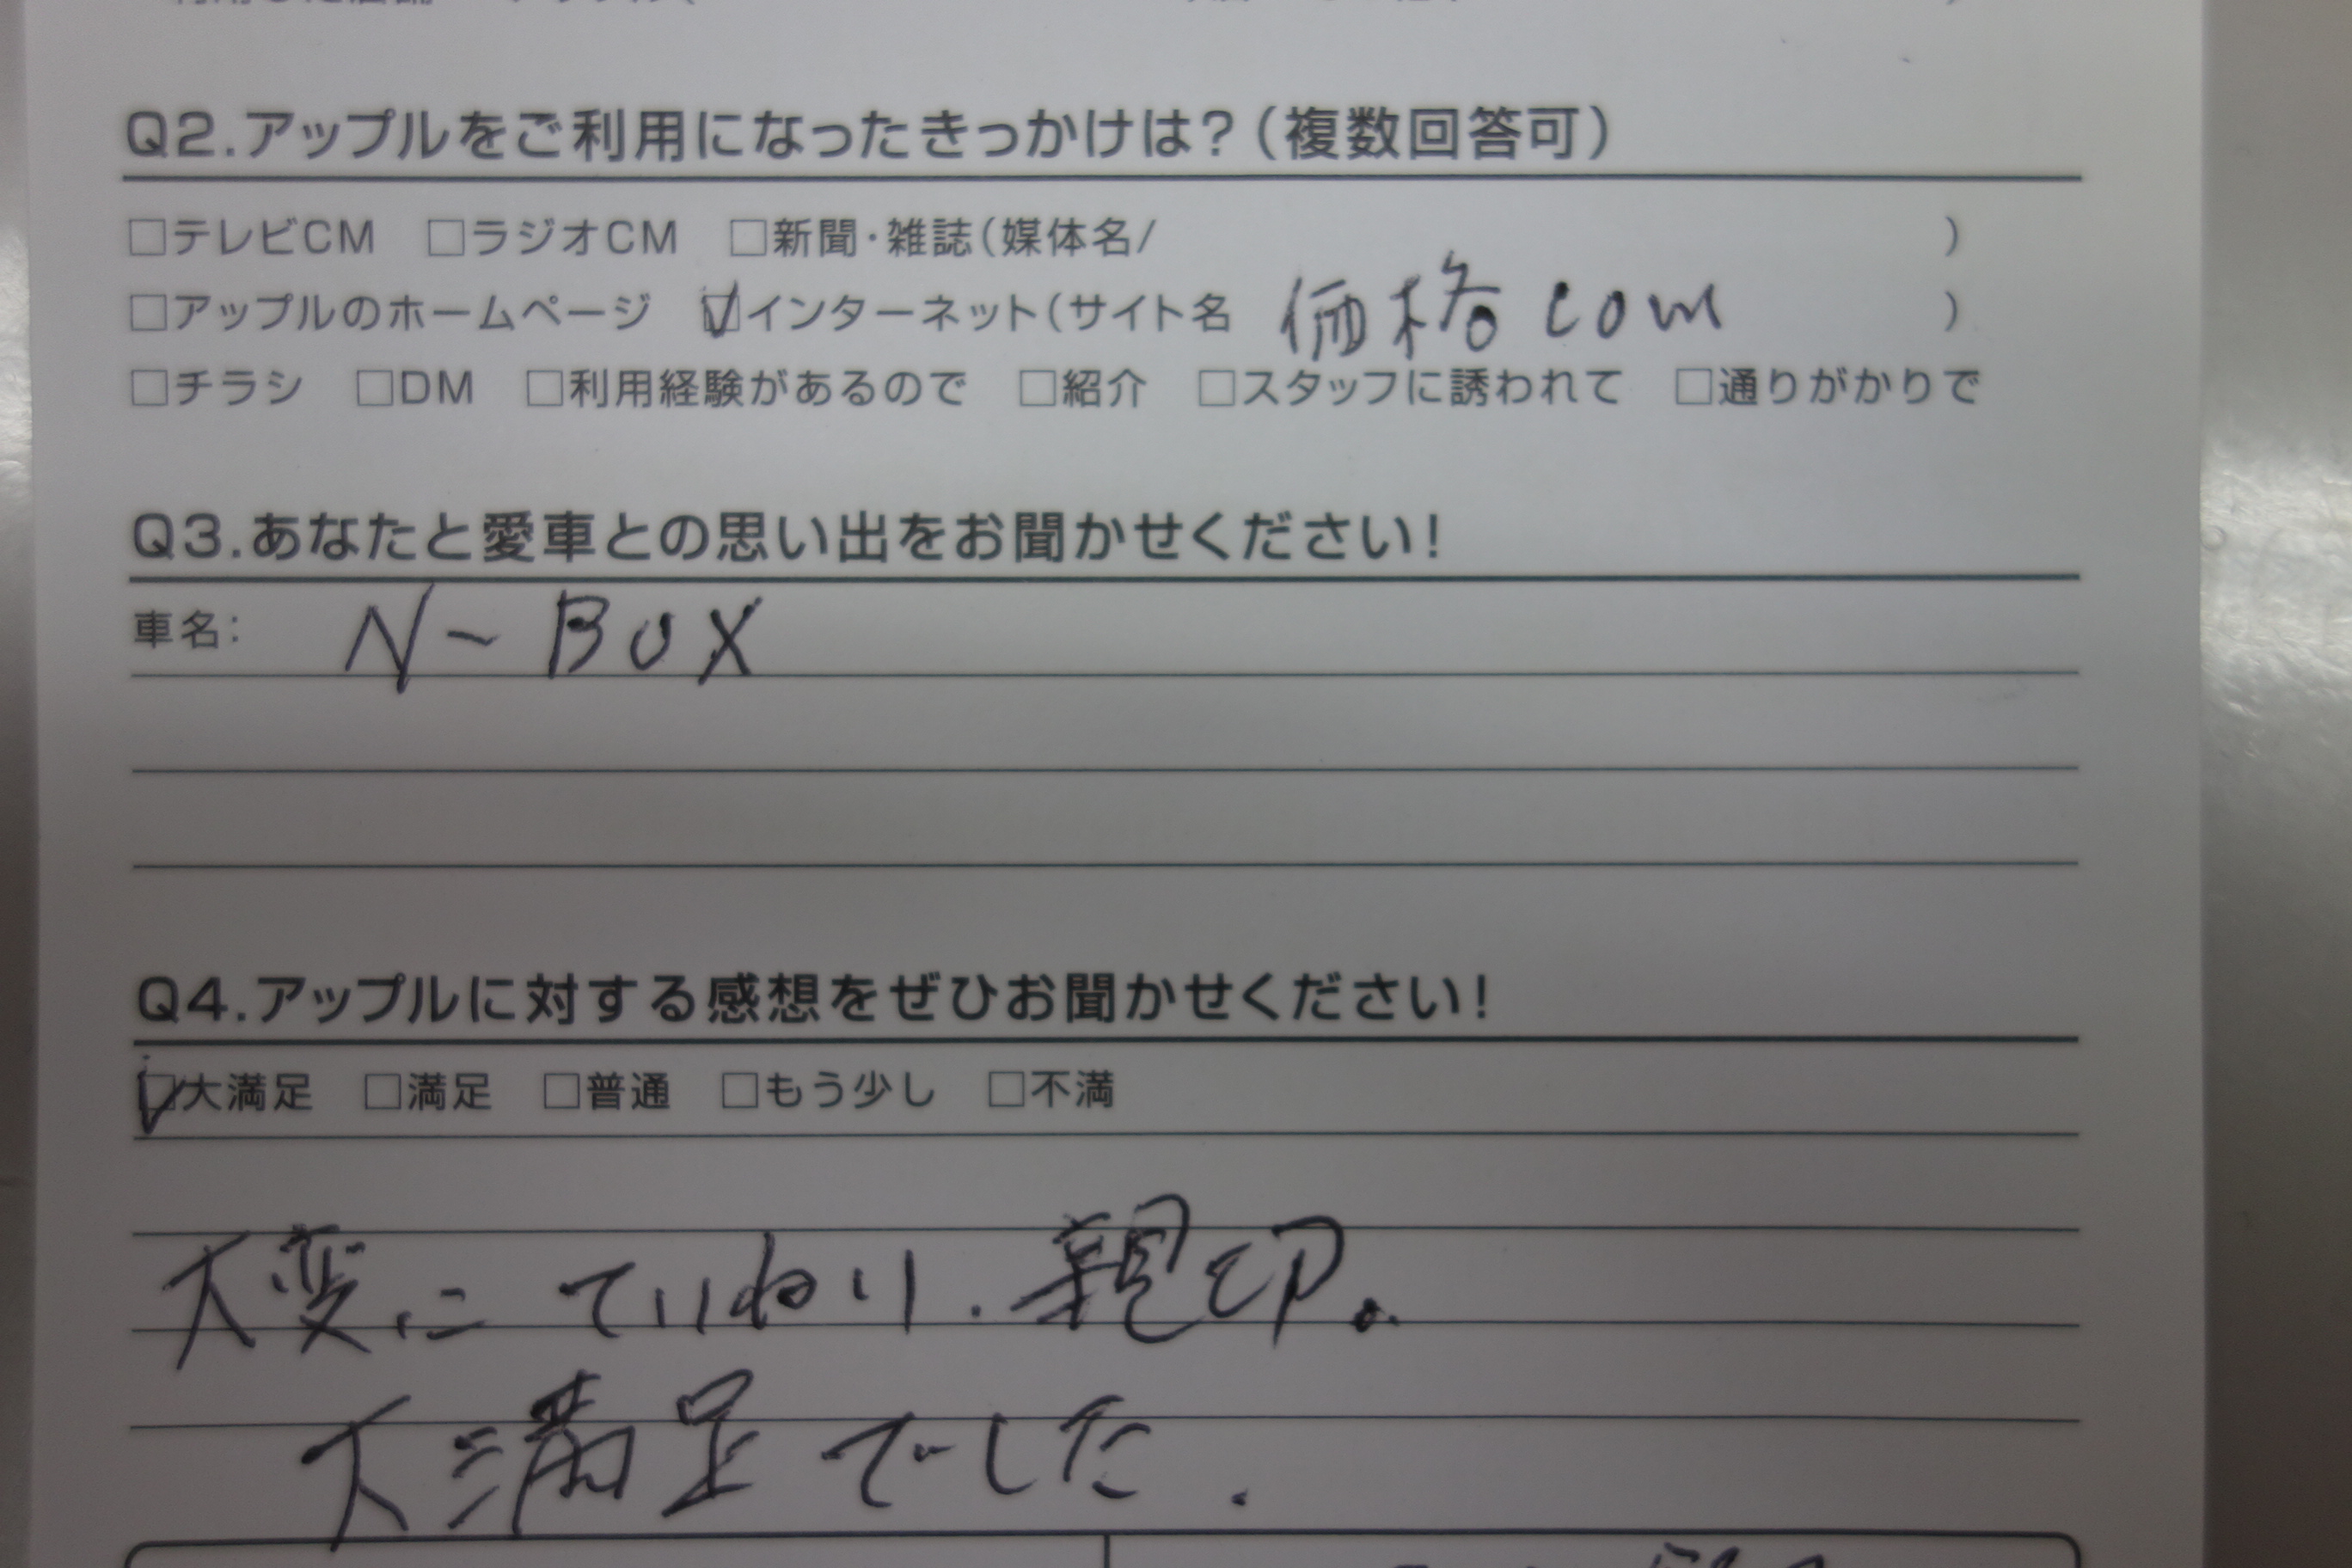 Q2.アップルをご利用になったきっかけは?(複数回答可)
□テレビCM □ラジオCM □新聞・雑誌(媒体名/ )
□アップルのホームページ ☑インターネット(サイト名 価格com )
□チラシ □DM □利用経験があるので □紹介 □スタッフに誘われて □通りがかりで
Q3.あなたと愛車との思い出をお聞かせください!
車名: N-BOX
Q4.アップルに対する感想をぜひお聞かせください!
☑大満足 □満足 □普通 □もう少し □不満
大変にていねい.親切。
大満足でした.